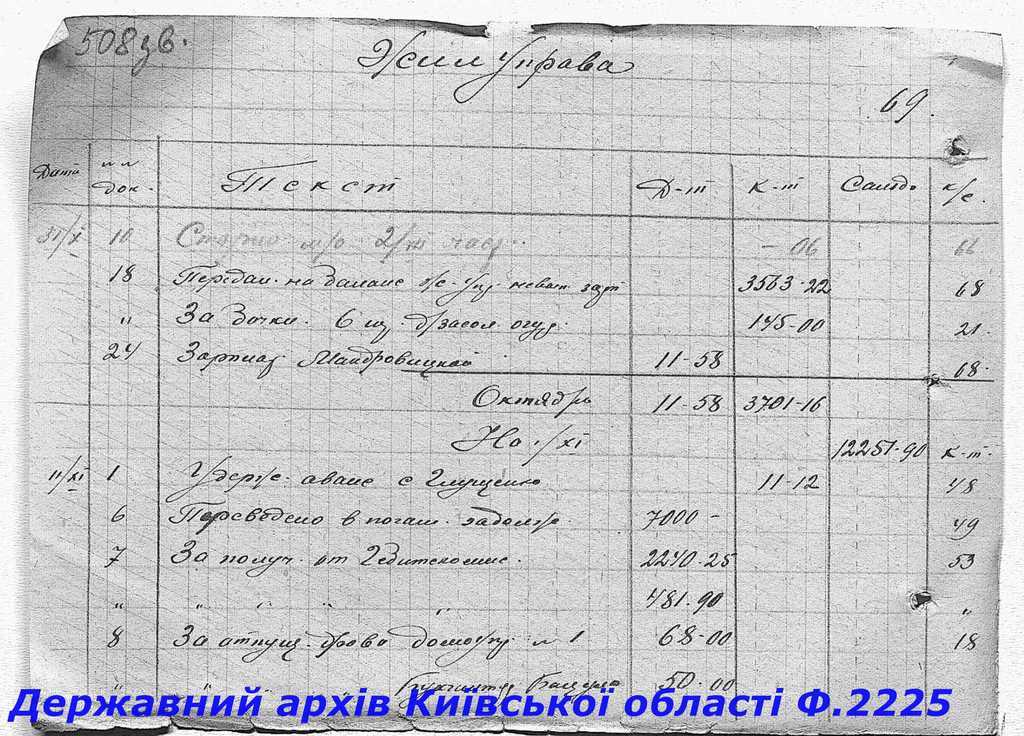 508зв.
Жил управа
69.
Дата № док. Текст Д-т К-т Сальдо к/с.
31/X 10 2/XI - 06 66
18 Передан. на баланс 3563-22 68
" За бочки 6 шт. д/засол. огур. 145-00 21.
24 Зарплат 11-58 68.
Октябрь 11-58 3701-16
На 1/XI 12251-90 к-т.
11/XI 1 Удерж. аванс с Глущенко 11-12 48
6 Переведено в погаш. задолж. 7000 - 49
7 За получ. от 2240-25 53
" " " " " 481-90 "
8 За отпущ. дрова домоупр. № 1 68-00 18
" " " " 50-00
Державний архів Київської області Ф.2225